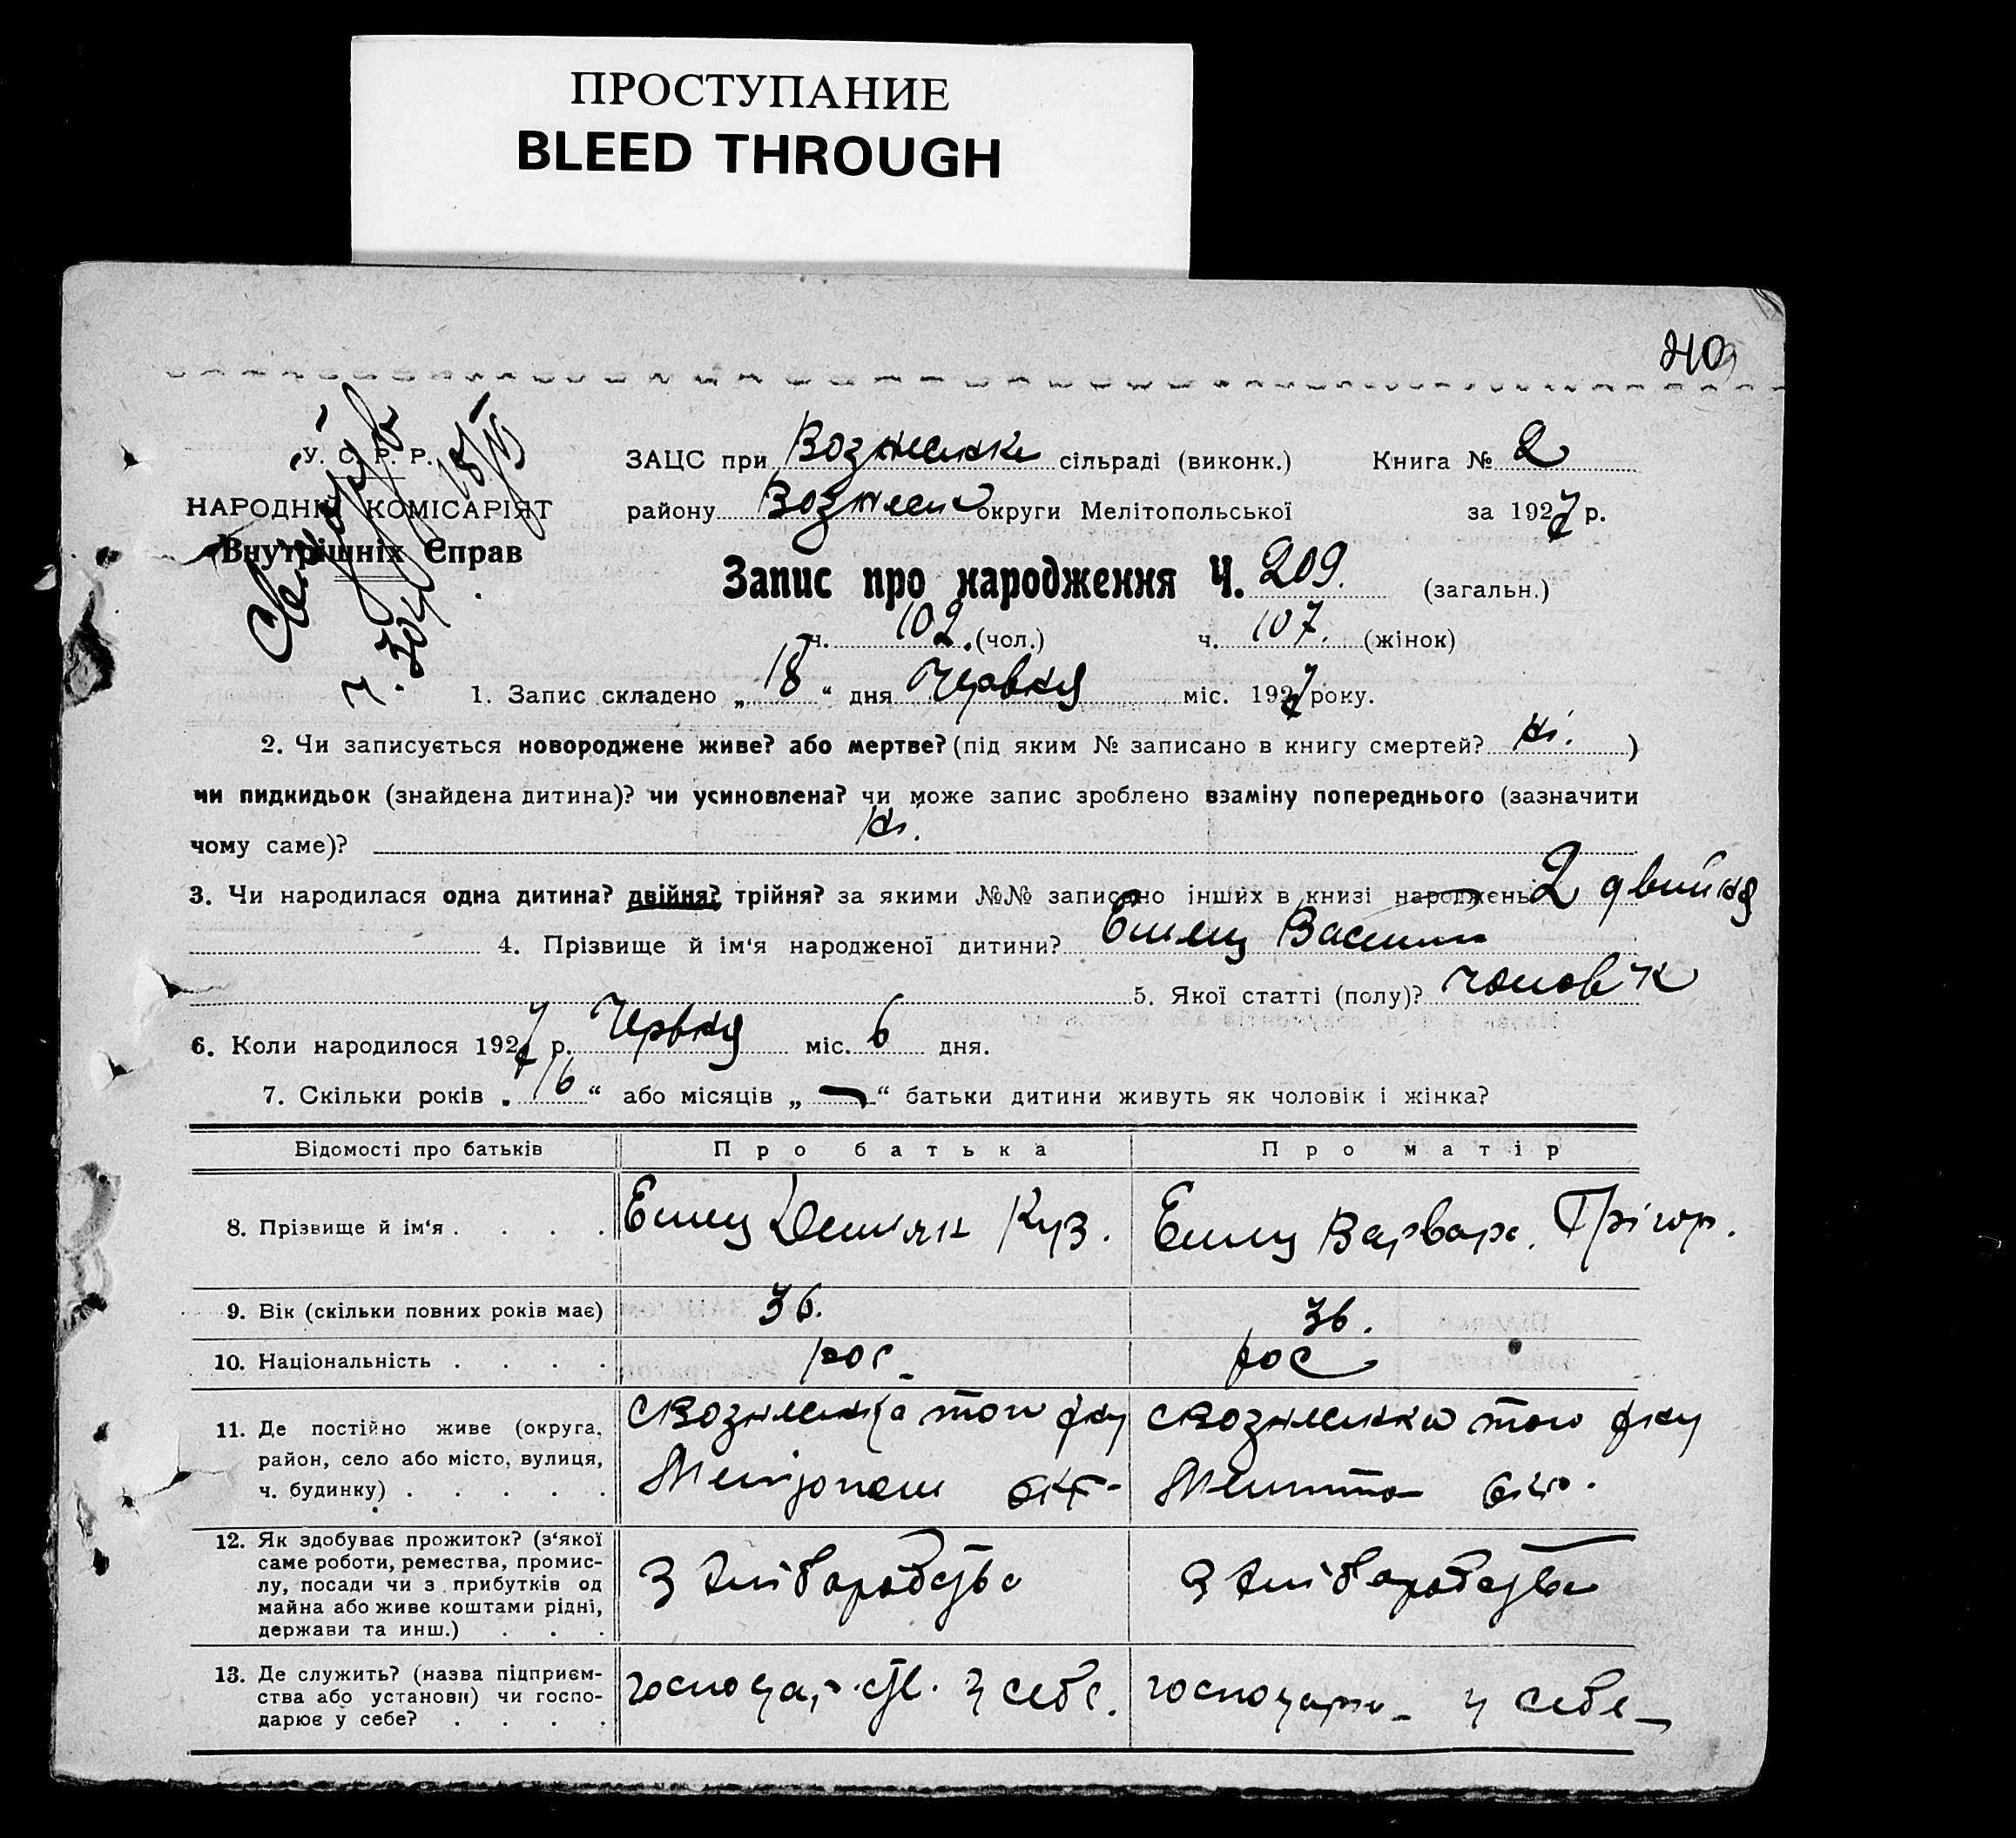 ПРОСТУПАНИЕ
BLEED THROUGH
40
У. С. Р. Р.
НАРОДНІЙ КОМІСАРІЯТ
Внутрішніх Справ
ЗАЦС при Вознесенке сільраді (виконк.) Книга № 2
району Вознесен округи Мелітопольської за 1927 р.
Запис про народження Ч. 209. (загальн.)
ч. 102. (чол.) ч. 107. (жінок)
1. Запис складено „ 18 “ дня Червня міс. 1927 року.
2. Чи записується новороджене живе? або мертве? (під яким № записано в книгу смертей? ні. )
чи пидкидьок (знайдена дитина)? чи усиновлена? чи може запис зроблено взаміну попереднього (зазначити
чому саме)? ні.
3. Чи народилася одна дитина? двійня? трійня? за якими №№ записано інших в книзі народжень 2 двийня
4. Прізвище й ім‘я народженої дитини? Емец Василь
5. Якої статті (полу)? чоловік
6. Коли народилося 1927 р. Червня міс. 6 дня.
7. Скільки років „ 16 “ або місяців „ — “ батьки дитини живуть як чоловік і жінка?
Відомості про батьків Про батька Про матір
8. Прізвище й ім‘я . . . . Емец Демьян Куз. Емец Варвара. Грігор.
9. Вік (скільки повних років має) 36. 36.
10. Національність . . . . рос рос
11. Де постійно живе (округа,
район, село або місто, вулиця,
ч. будинку) . . . . .
с Вознесенка того р-ну с Вознесенка того р-ну
Мелітопол окр. Меліто окр.
12. Як здобуває прожиток? (з‘якої
саме роботи, ремества, промис-
лу, посади чи з прибутків од
майна або живе коштами рідні,
держави та инш.) . . .
З хліборобства З хліборобства
13. Де служить? (назва підприєм-
ства або установи) чи госпо-
дарює у себе? . . . .
господар. ств. у себе. господари у себе